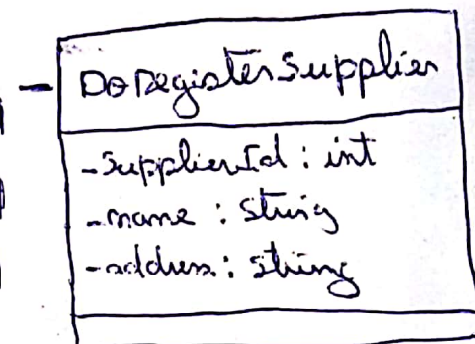 DoRegisterSupplier
-SupplierId : int
-name : String
-address : string